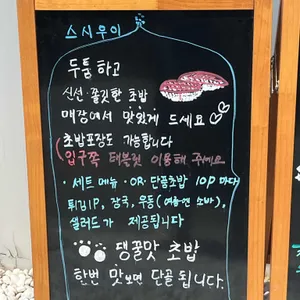 스시우이
두툼하고
신선·쫄깃한 초밥
매장에서 맛있게 드세요
초밥포장도 가능합니다
(입구쪽 태블릿 이용해 주세요
· 세트 메뉴 · OR · 단품초밥 10P 마다
튀김1P, 장국, 우동(여름엔 소바),
샐러드가 제공됩니다
탱꿀맛 초밥
한번 맛보면 단골 됩니다.